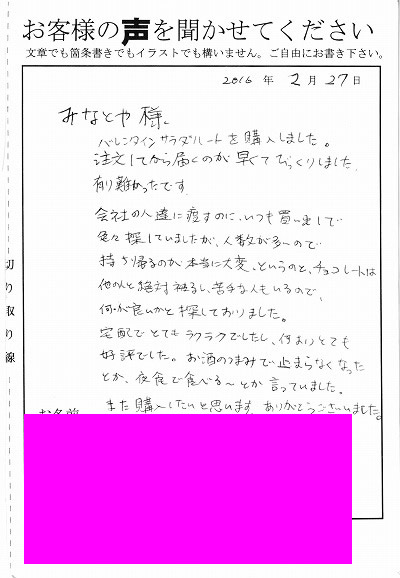 お客様の声を聞かせてください
文章でも箇条書きでもイラストでも構いません。ご自由にお書き下さい。
2016 年 2 月 27 日
みなとや 様
バレンタインサラダハートを購入しました。
注文してから届くのが早くてびっくりしました
有り難かったです
会社の人達に渡すのに、いつも買い出しで
色々探していましたが、人数が多いので
持ち帰るのが本当に大変、というのと、チョコレートは
他の人と絶対被るし、苦手な人もいるので、
何が良いかと探しておりました。
宅配でとてもラクラクでしたし、何よりとても
好評でした。お酒のつまみで止まらなくなった
とか、夜食で食べる〜とか言っていました。
また購入したいと思います。ありがとうございました。
お名前
切り取り線